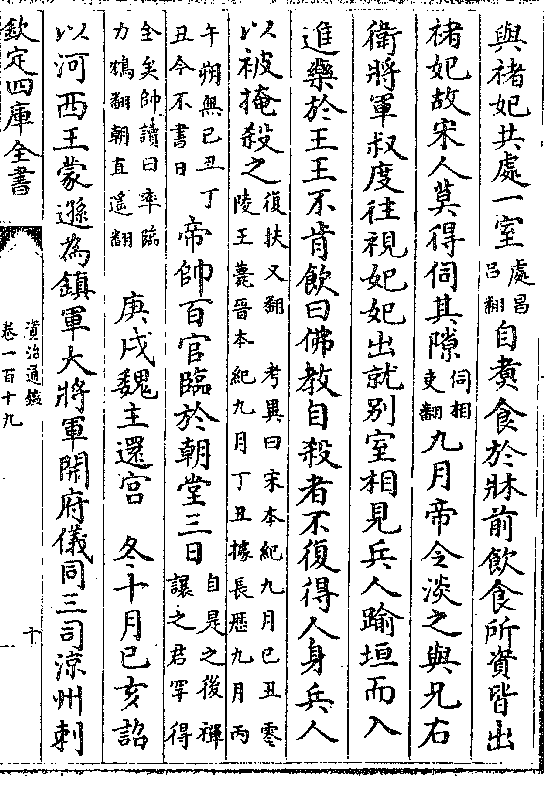 與褚妃共處一室處昌呂翻自煮食於牀前飲食所資皆出
褚妃故宋人莫得伺其隙伺相吏翻九月帝令淡之與兄右
衛將軍叔度往視妃妃出就别室相見兵人踰垣而入
進藥於王王不肯飲曰佛教自殺者不復得人身兵人
以被掩殺之復扶又翻 考異曰宋本紀九月己丑零陵王薨晉本紀九月丁丑據長歷九月丙
午朔無己丑丁丑今不書日帝帥百官臨於朝堂三日自是之後禪讓之君罕得
全矣帥讀曰率臨力鴆翻朝直遥翻 庚戌魏主還宫 冬十月己亥詔
以河西王蒙遜為鎮軍大將軍開府儀同三司涼州刺
欽定四庫全書
資治通鑑
卷一百十九
十